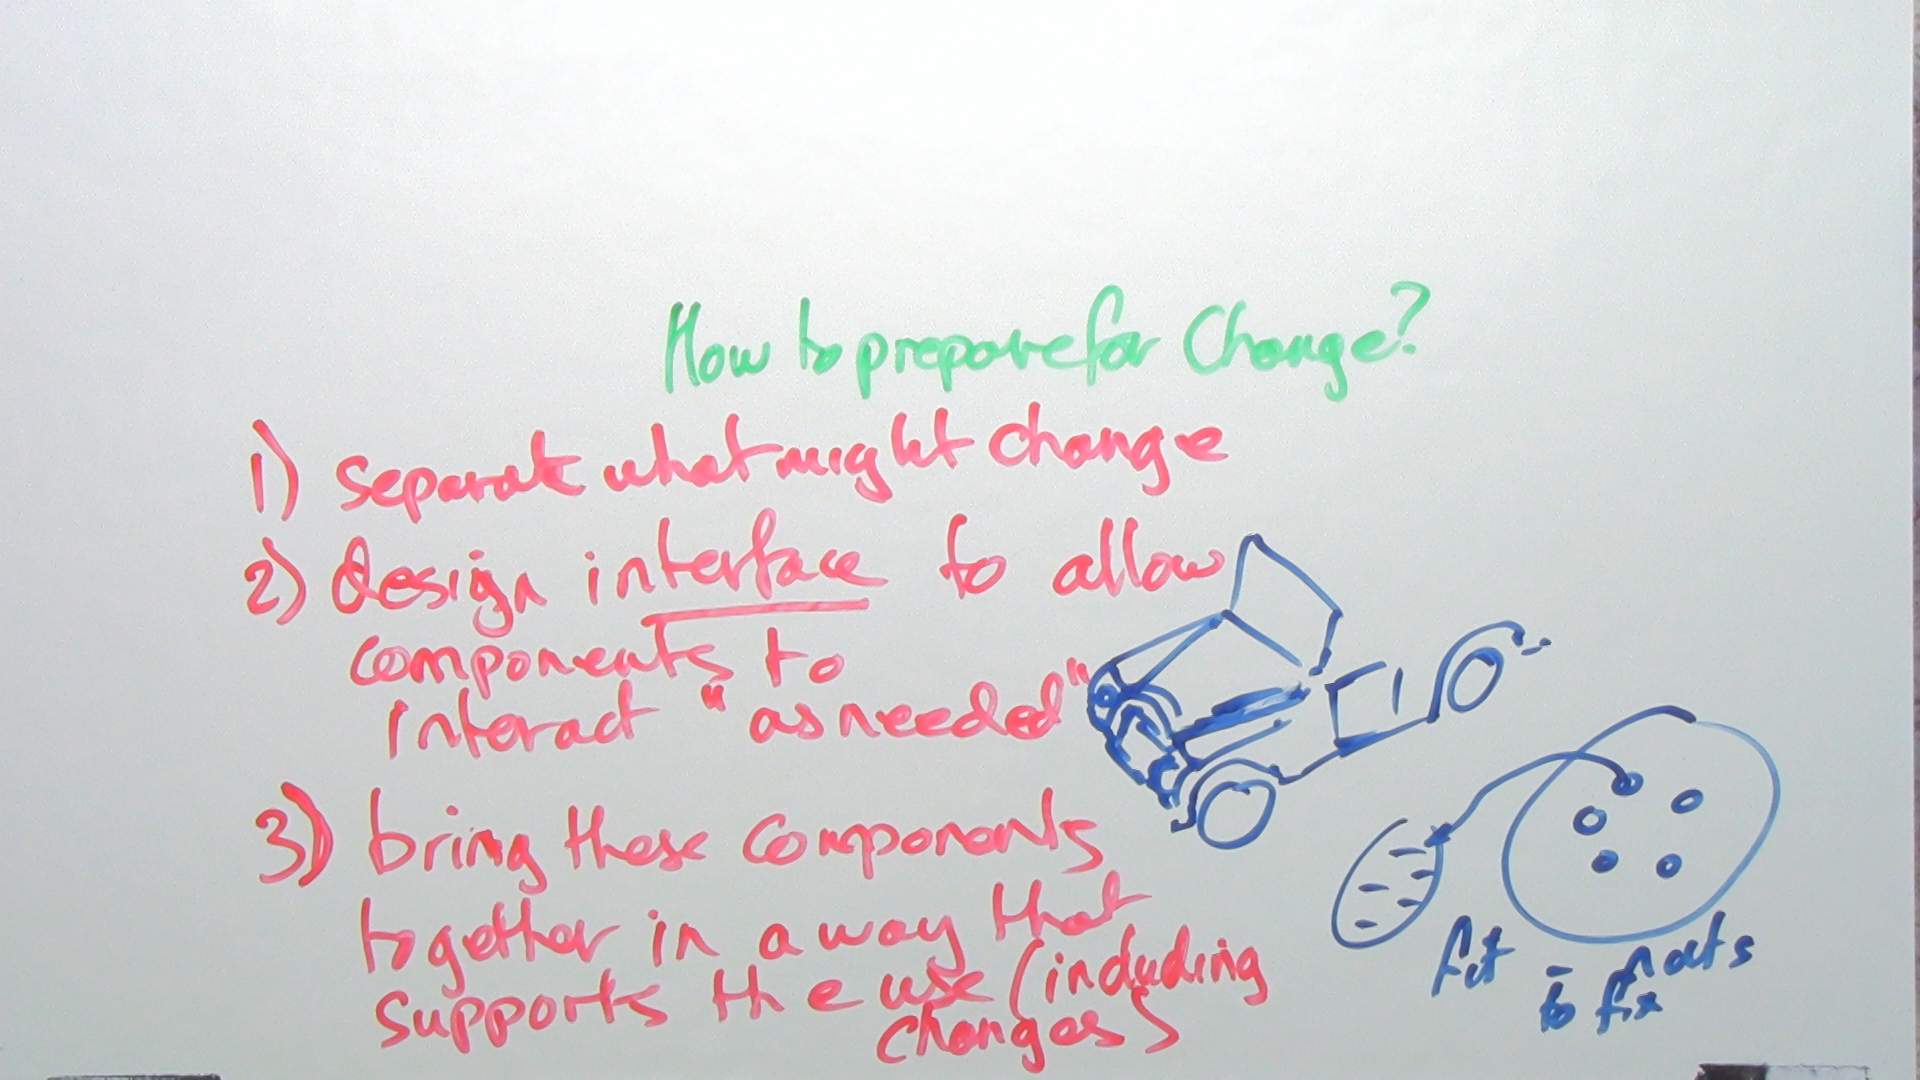 How to prepare for Change?
1) separate what might change
2) design interface to allow
components to
interact "as needed"
3) bring these components
together in a way that
supports the use (including
changes)
fit
to fix